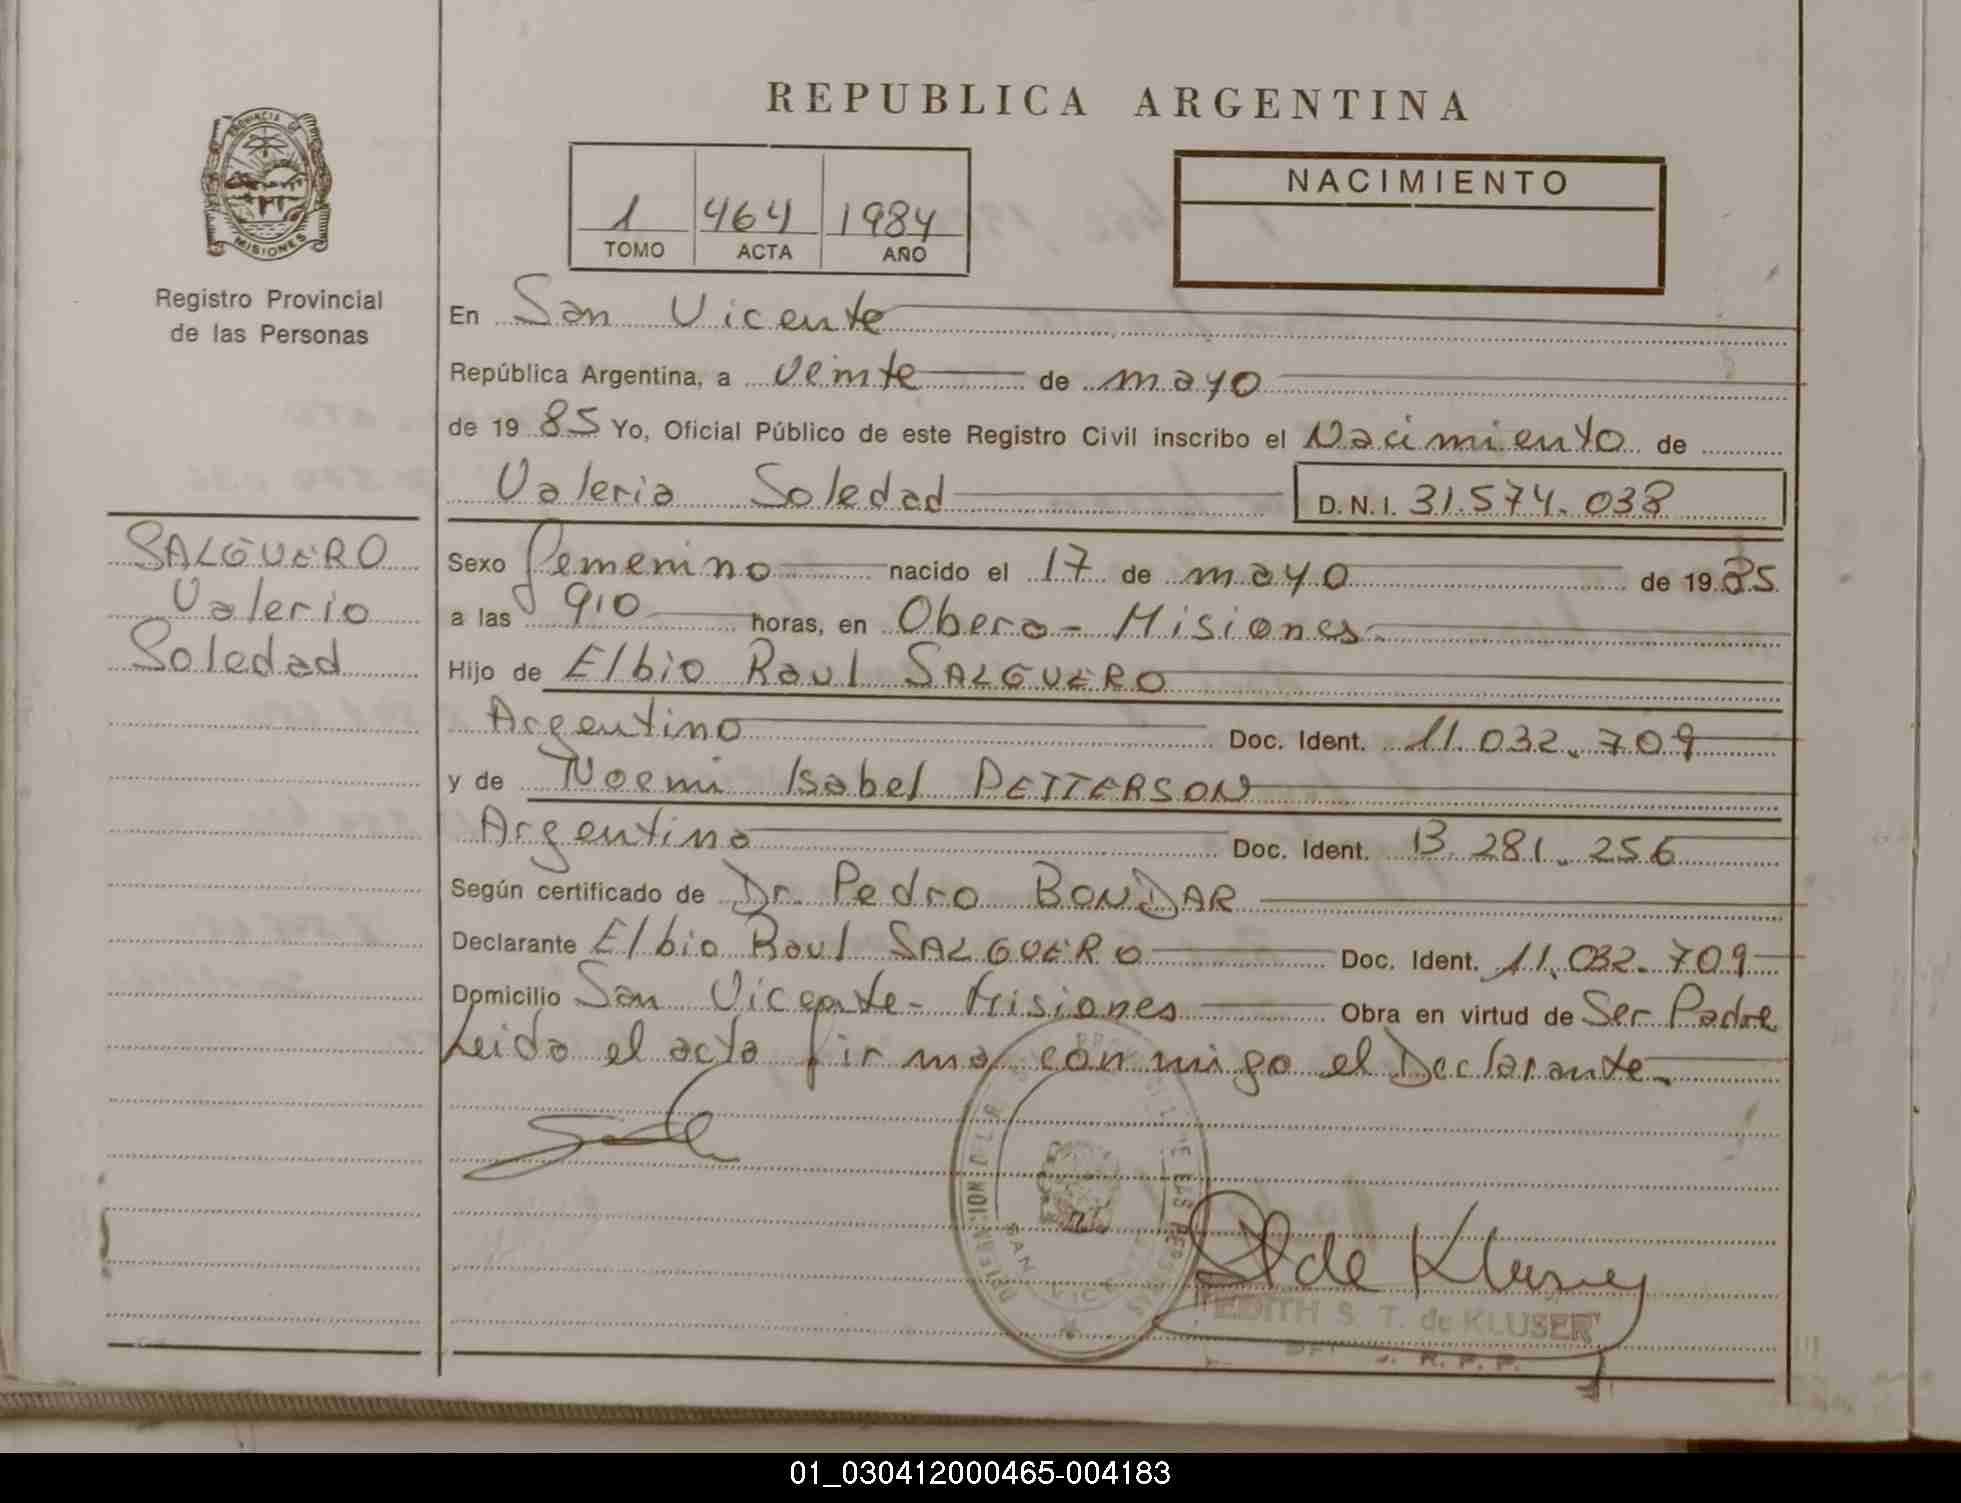 REPUBLICA ARGENTINA
PROVINCIA DE
MISIONES
Registro Provincial
de las Personas
1 464 1984
TOMO ACTA AÑO
NACIMIENTO
En San Vicente
República Argentina, a veinte de mayo
de 1985 Yo, Oficial Público de este Registro Civil inscribo el Nacimiento de
Valeria Soledad D.N.I. 31.574.038
SALGUERO
Valeria
Soledad
Sexo femenino nacido el 17 de mayo de 1985
a las 910 horas, en Obera - Misiones
Hijo de Elbio Raul SALGUERO
Argentino Doc. Ident. 11.032.709
y de Noemi Isabel PETTERSON
Argentina Doc. Ident. 13.281.256
Según certificado de Dr. Pedro BONDAR
Declarante Elbio Raul SALGUERO Doc. Ident. 11.032.709
Domicilio San Vicente - Misiones Obra en virtud de Ser Padre
Leida el acta firma conmigo el Declarante.
de Kluser
EDITH S. T. de KLUSER
R. P. P.
01_030412000465-004183